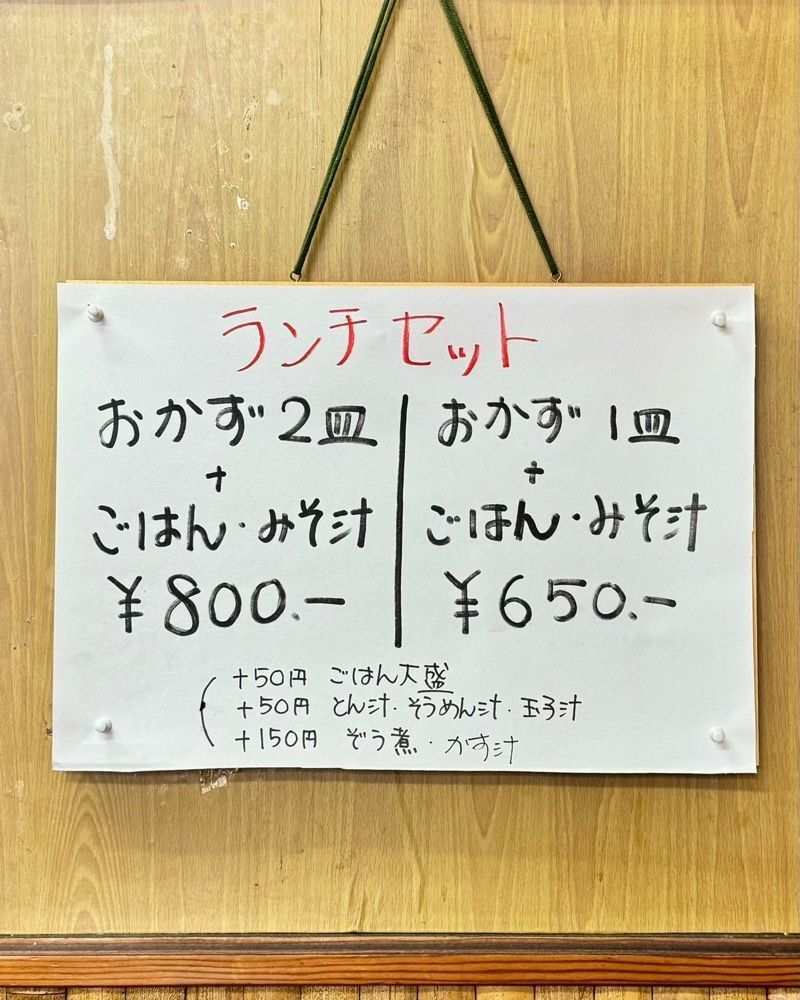 ランチセット
おかず2皿
+
ごはん・みそ汁
¥800.-
おかず1皿
+
ごはん・みそ汁
¥650.-
+50円 ごはん大盛
+50円 とん汁・そうめん汁・玉子汁
+150円 ぞう煮・かす汁